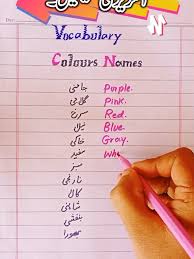 Vocabulary
Colours Names
جامنی Purple.
گلابی Pink.
سرخ Red.
نیلا Blue.
خاکی Gray.
سفید Wh
سبز
نارنجی
کالا
بنفشی
بھورا